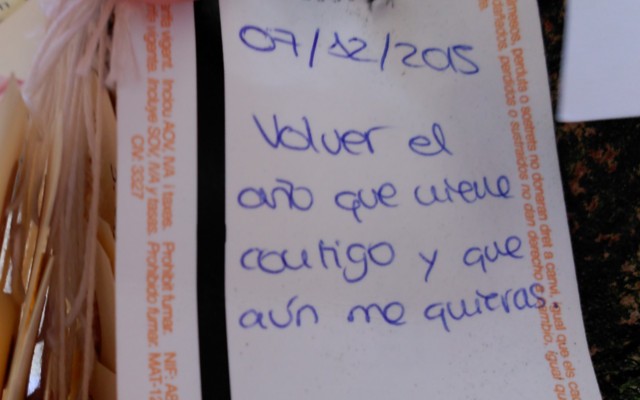 07/12/2015
Volver el
año que viene
contigo y que
aún me quieras.
nta vigent. Inclou AOV, IVA i taxes. Prohibit fumar. NIF: A8
fa vigente. Incluye SOV, IVA y tasas. Prohibido fumar. MAT-12
CIV: 3327
perduts o sostrets no donaran dret a canvi, igual que els
perdidos o sustraídos no dan derecho a cambio, igual qu